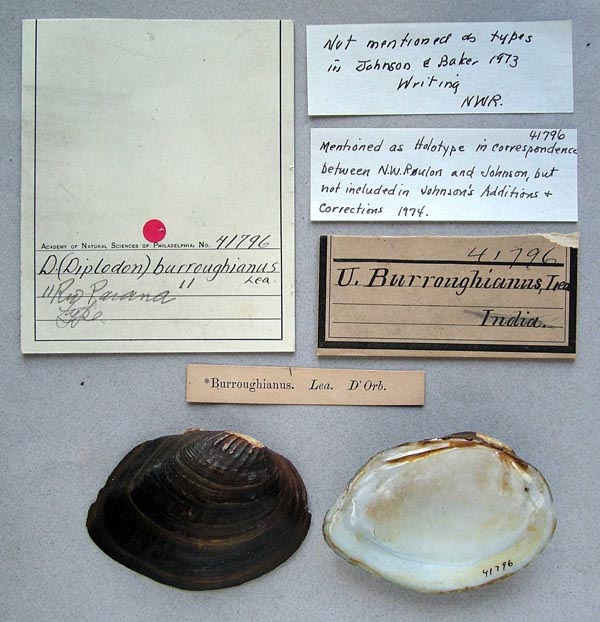 ACADEMY OF NATURAL SCIENCES OF PHILADELPHIA, NO. 41796
D. (Diplodon) burroughianus
Lea.
"Rio Parana"
type
Not mentioned as types
in Johnson & Baker 1973
Writing
NWR.
41796
Mentioned as Holotype in correspondence
between N.W. Raulon and Johnson, but
not included in Johnson's Additions +
Corrections 1974.
41796
U. Burroughianus, Lea
India.
*Burroughianus. Lea. D'Orb.
41796